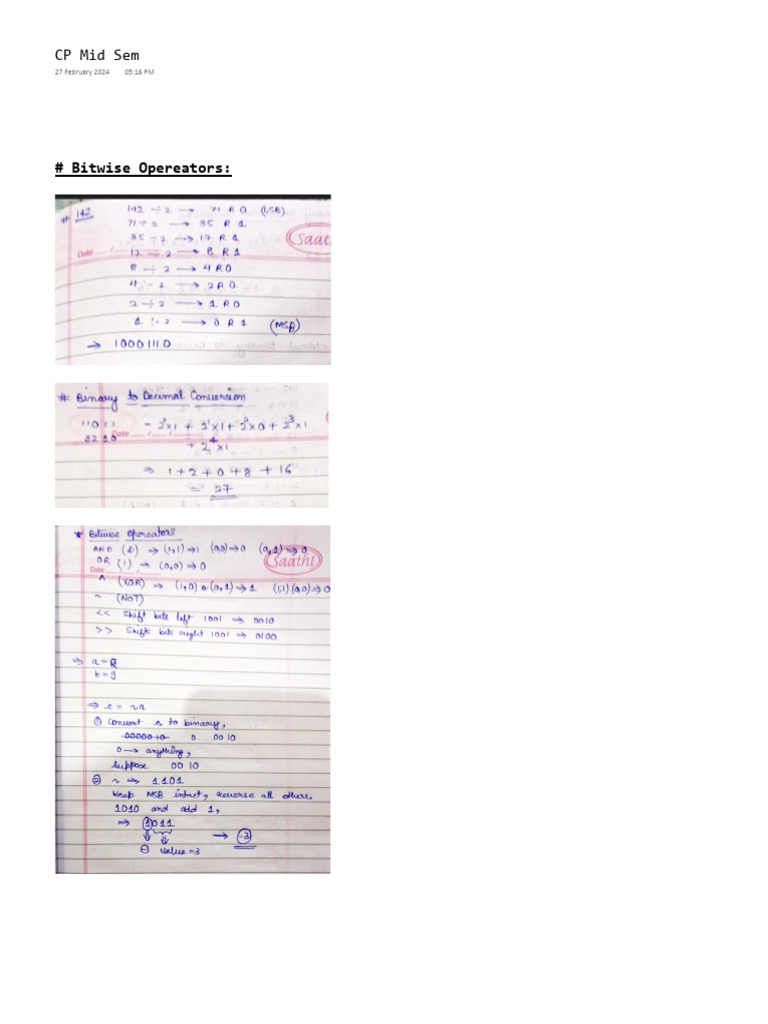 CP Mid Sem
27 February 2024 05:16 PM
# Bitwise Opereators:
# 142
142 ÷ 2 → 71 R 0 (LSB)
71 ÷ 2 → 35 R 1
35 ÷ 2 → 17 R 1
Saathi
Date
17 ÷ 2 → 8 R 1
8 ÷ 2 → 4 R 0
4 ÷ 2 → 2 R 0
2 ÷ 2 → 1 R 0
1 ÷ 2 → 0 R 1 (MSB)
→ 10001110
# Binary to Decimal Conversion
11011 = 2⁰x1 + 2¹x1 + 2²x0 + 2³x1
Date
+ 2⁴x1
⇒ 1 + 2 + 0 + 8 + 16
= 27
* Bitwise Opereators
AND (&) ⇒ (1,1) → 1 (0,0) → 0 (0,1) → 0
OR (|) ⇒ (0,0) → 0
Saathi
Date
^ (XOR) ⇒ (1,0) or (0,1) → 1 (1,1) (0,0) → 0
~ (NOT)
<< Shift bits left 1001 ⇒ 0010
>> Shifts bits right 1001 ⇒ 0100
⇒ a =
b = 9
⇒ c = ~a
① Convert a to binary,
0....0010
0 → anything,
Suppose 0010
② ~ ⇒ 1101
Keep MSB intact, reverse all others,
1010 and add 1,
⇒ 1011 → -3
⊖ value = 3